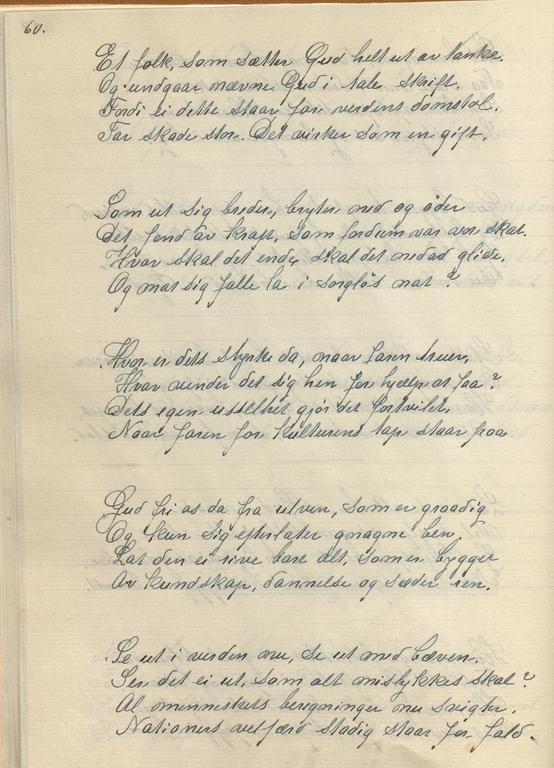 60.
Et folk, som sætter Gud helt ut av tanke.
Og undgaar nævne Gud i tale skrift.
Fordi ei dette staar for verdens domstol.
Tar skade stor. Det virker som en gift.
Som ut sig breder, bryter ned og öder
Det fond av kraft, som fordum var vor skat.
Hvor skal det ende, skal det nedad glide.
Og mat sig falle la i sorglös nat?
Hvor er dets styrke da, naar faren truer,
Hvor vender det sig hen for hjælp at faa?
Dets egen usselhet gjör det fortvilet,
Naar faren for Kulturens tap staar paa
Gud fri os da fra ulven, som er graadig
Og kun sig efterlater gnagne ben.
Lat den ei rive bort alt, som er bygget
Av Kundskap, dannelse og sæder ren.
Se ut i verden nu, se ut med bæven.
Ser det ei ut, som alt mislykkes skal?
Al menneskets beregninger nu svigter.
Nationers velfærd stadig staar for fald.